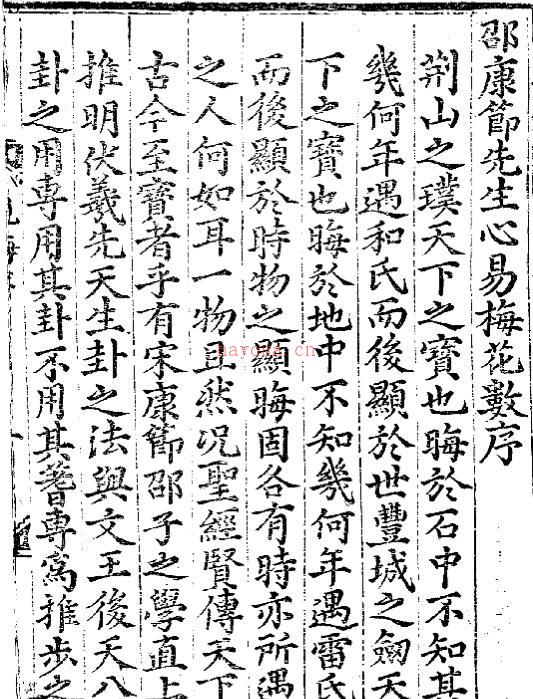 邵康節先生心易梅花數序
荆山之璞天下之寶也晦於石中不知其
幾何年遇和氏而後顯於世豐城之劒天
下之寶也晦於地中不知幾何年遇雷氏
而後顯於時物之顯晦固各有時亦所遇
之人何如耳一物且然况聖經賢傳天下
古今至寶者乎有宋康節邵子之學直上
推明伏羲先天生卦之法與文王後天八
卦之用専用其卦不用其蓍専爲推步之
nayona.cn